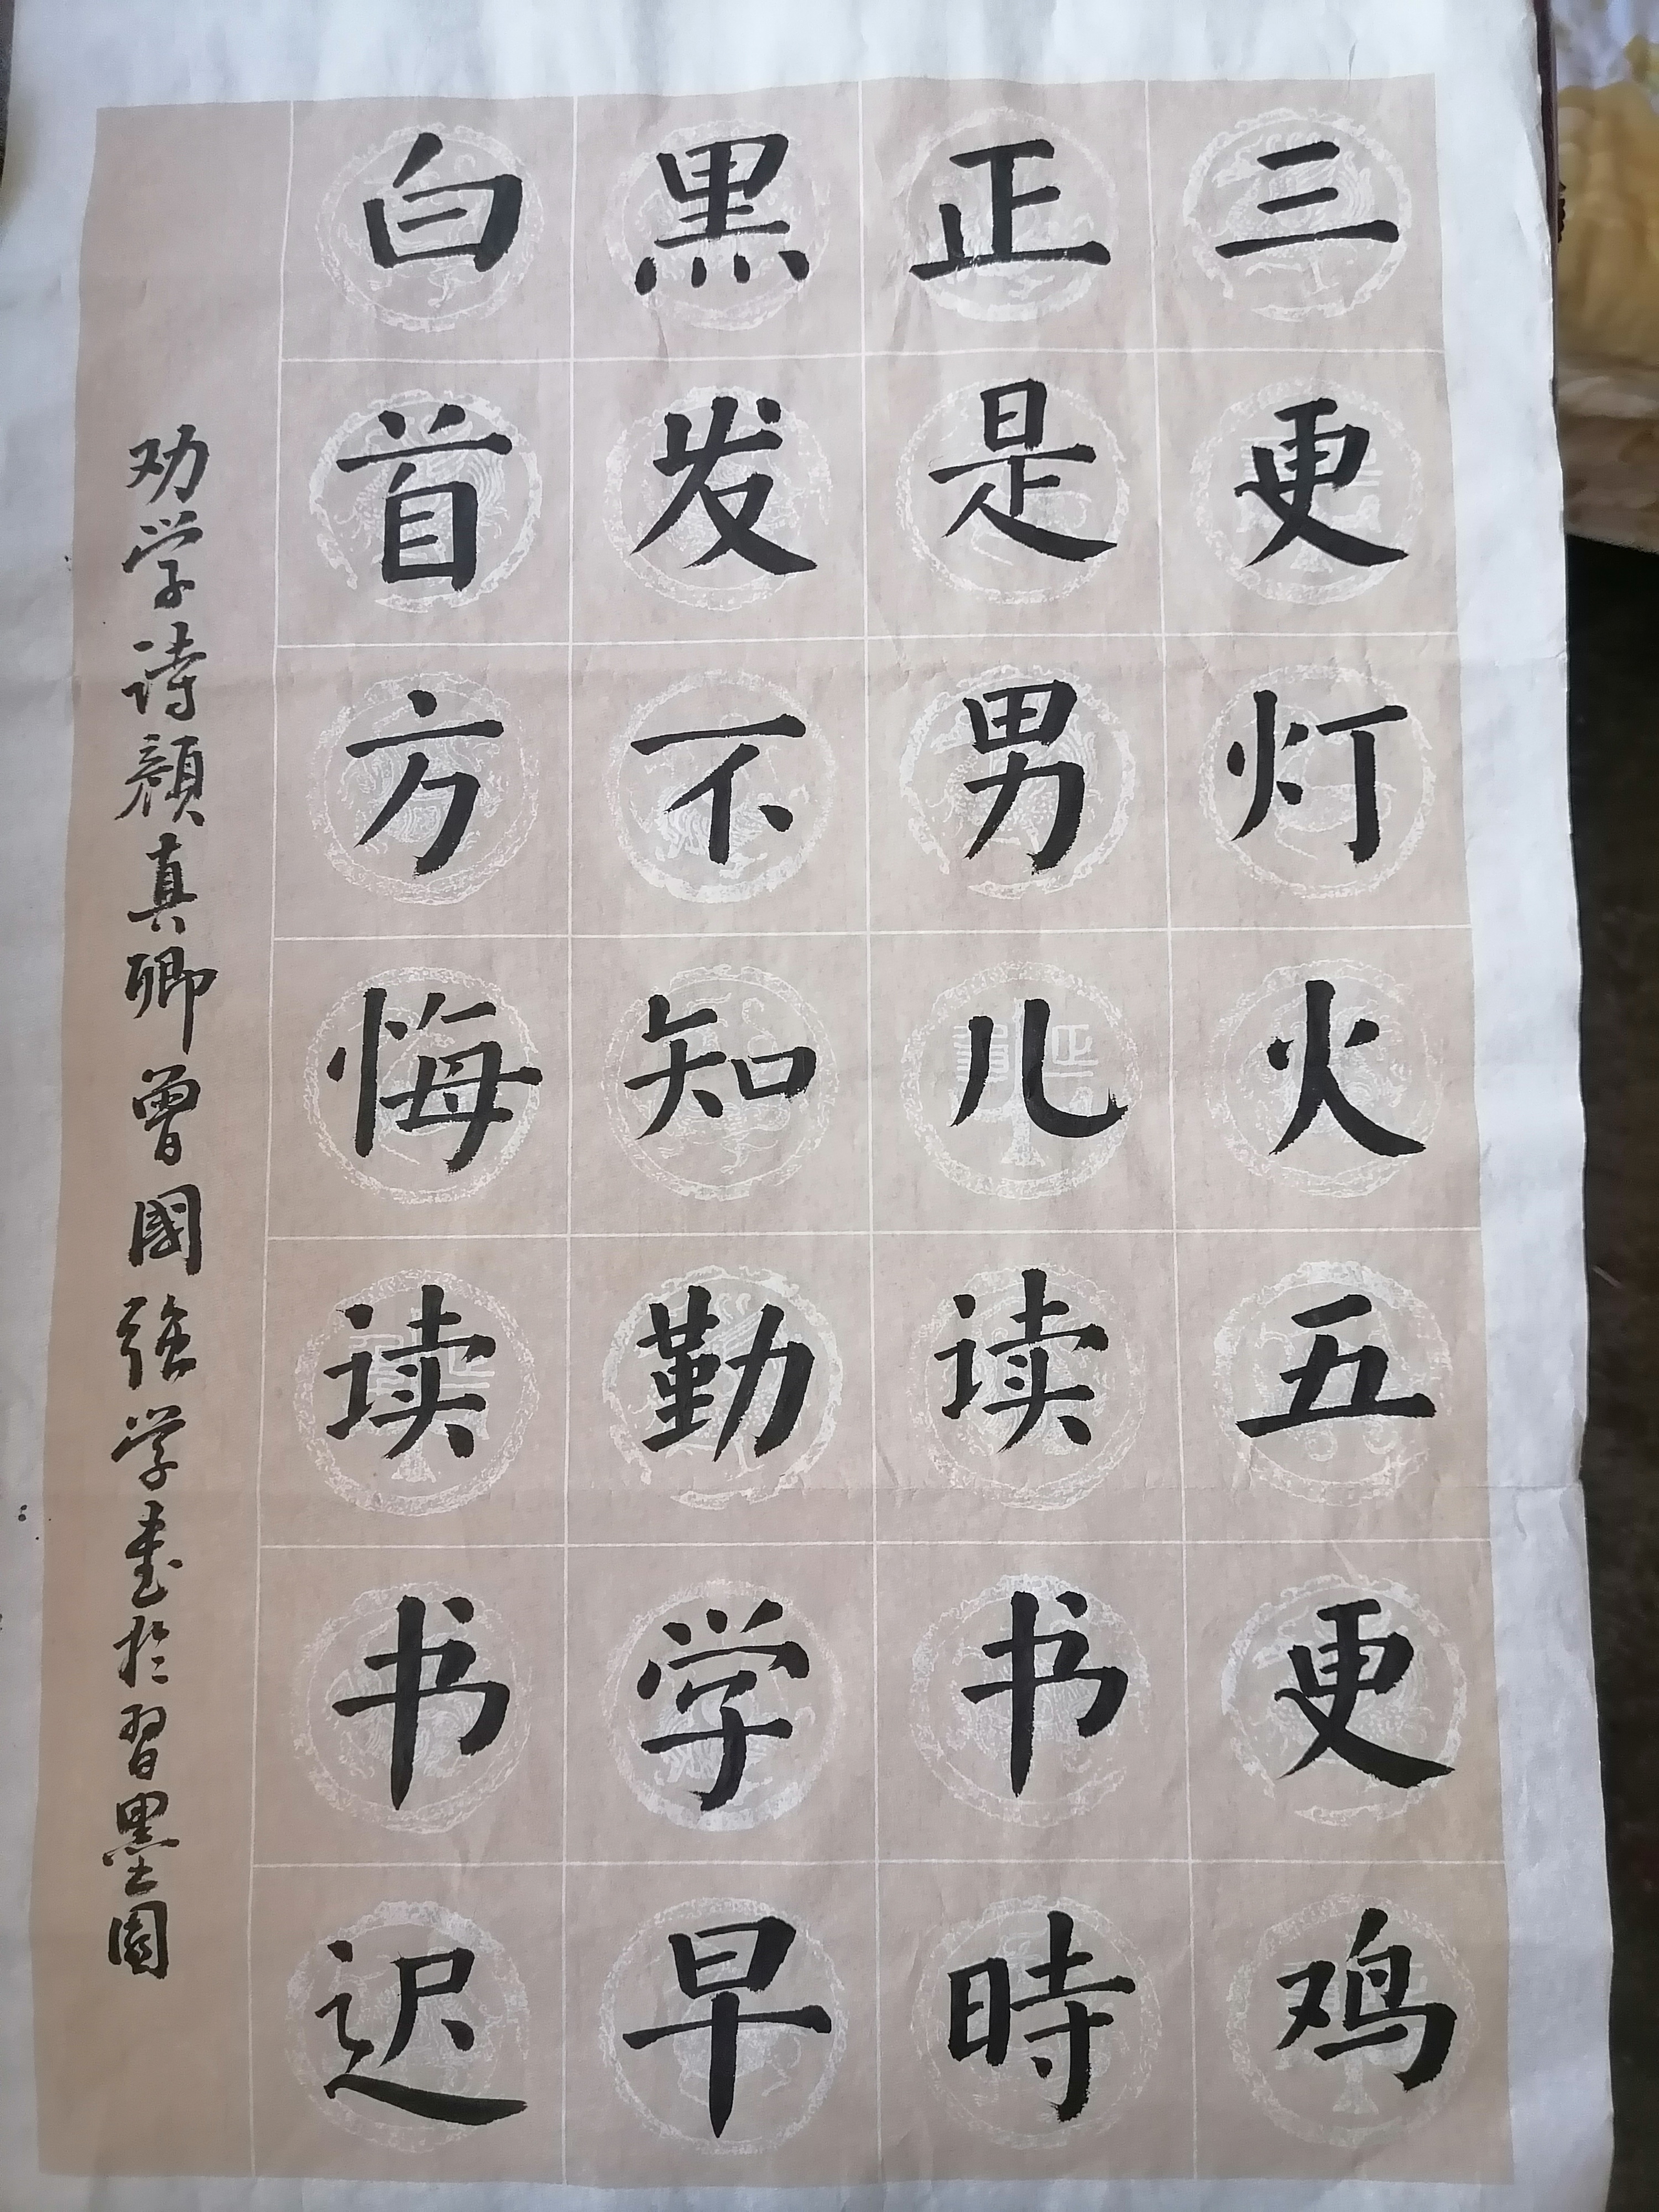 三更灯火五更鸡
正是男儿读书時
黑发不知勤学早
白首方悔读书迟
劝学诗顔真卿曾國强学书於習墨園